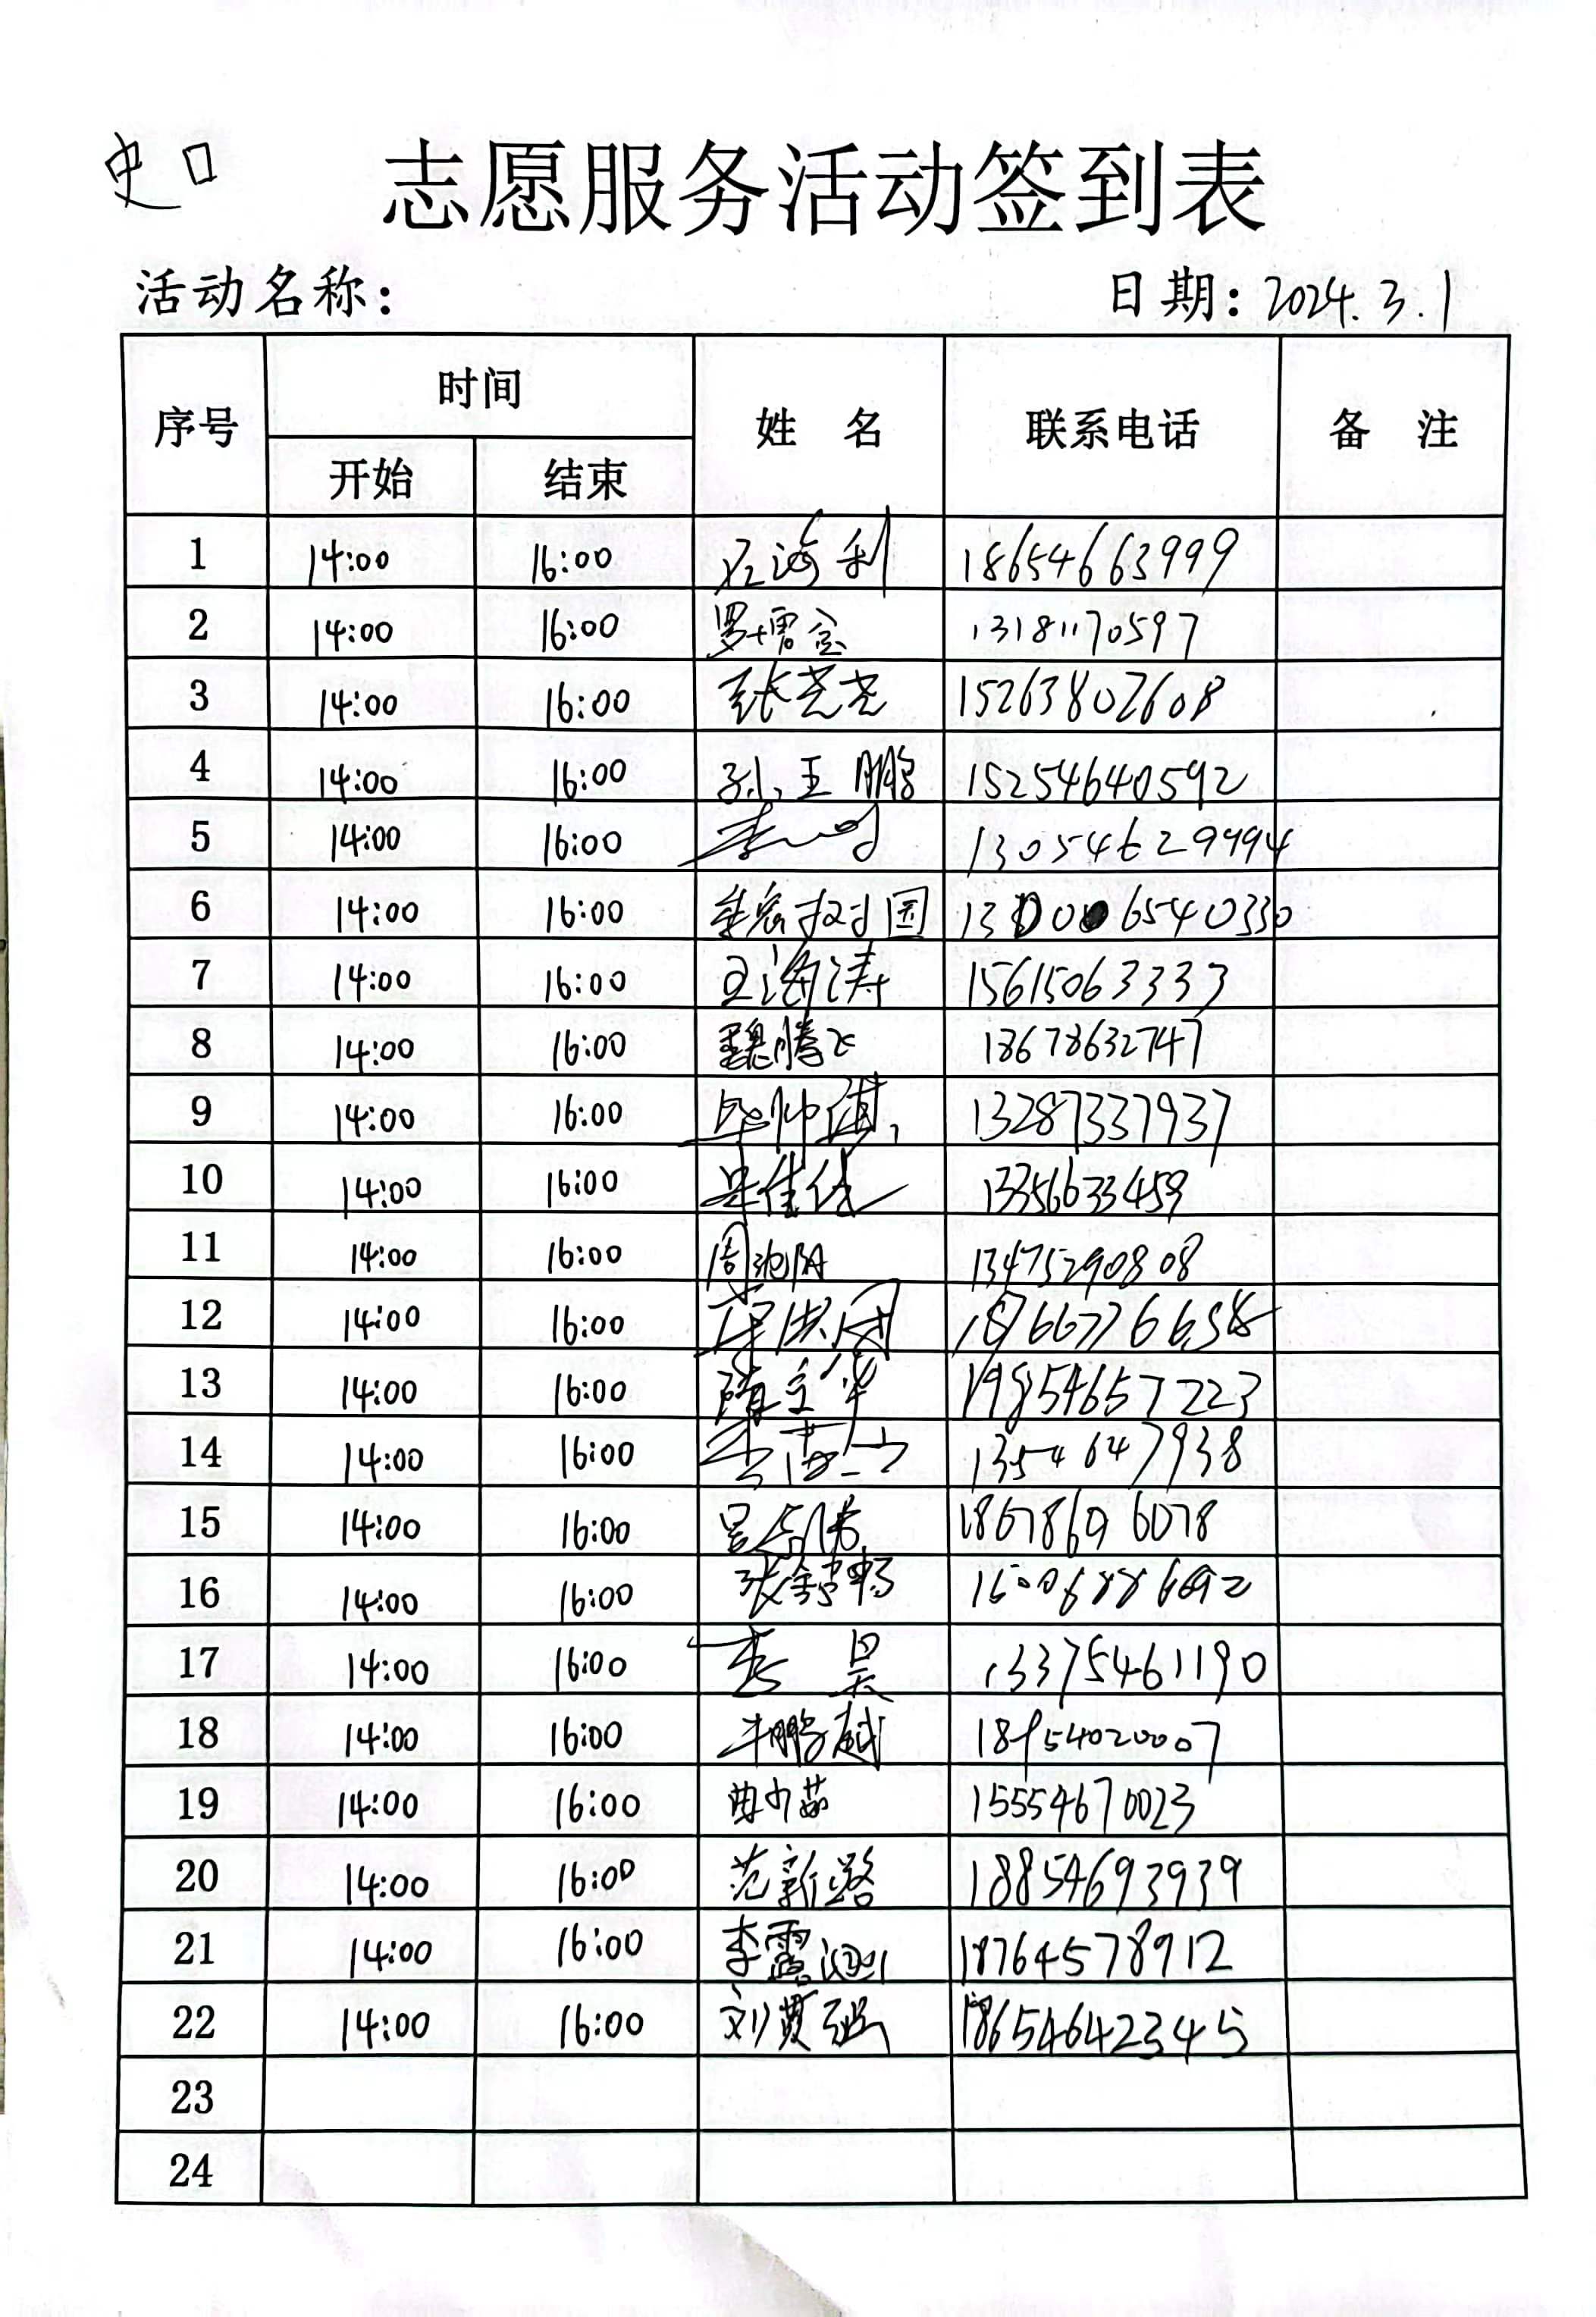 史口
志愿服务活动签到表
活动名称： 日期：2024.3.1
序号 时间 姓 名 联系电话 备 注
开始 结束
1 14:00 16:00 石海利 18654663999
2 14:00 16:00 罗增金 13181170597
3 14:00 16:00 张尧尧 15263802608
4 14:00 16:00 孙王鹏 15254640592
5 14:00 16:00 13054629994
6 14:00 16:00 国
7 14:00 16:00 王海涛 15615063333
8 14:00 16:00 魏腾飞 18678632747
9 14:00 16:00 毕帅 13287337937
10 14:00 16:00 佳 13356633459
11 14:00 16:00 周 13475290808
12 14:00 16:00 18766776658
13 14:00 16:00 隋立华 19854657223
14 14:00 16:00 李 1354647938
15 14:00 16:00 18678696078
16 14:00 16:00 张
17 14:00 16:00 李昊 13375461190
18 14:00 16:00 牛鹏越 18954020007
19 14:00 16:00 曲少茹 15554670023
20 14:00 16:00 范新路 18854693939
21 14:00 16:00 李露 18764578912
22 14:00 16:00 刘 18654642345
23
24